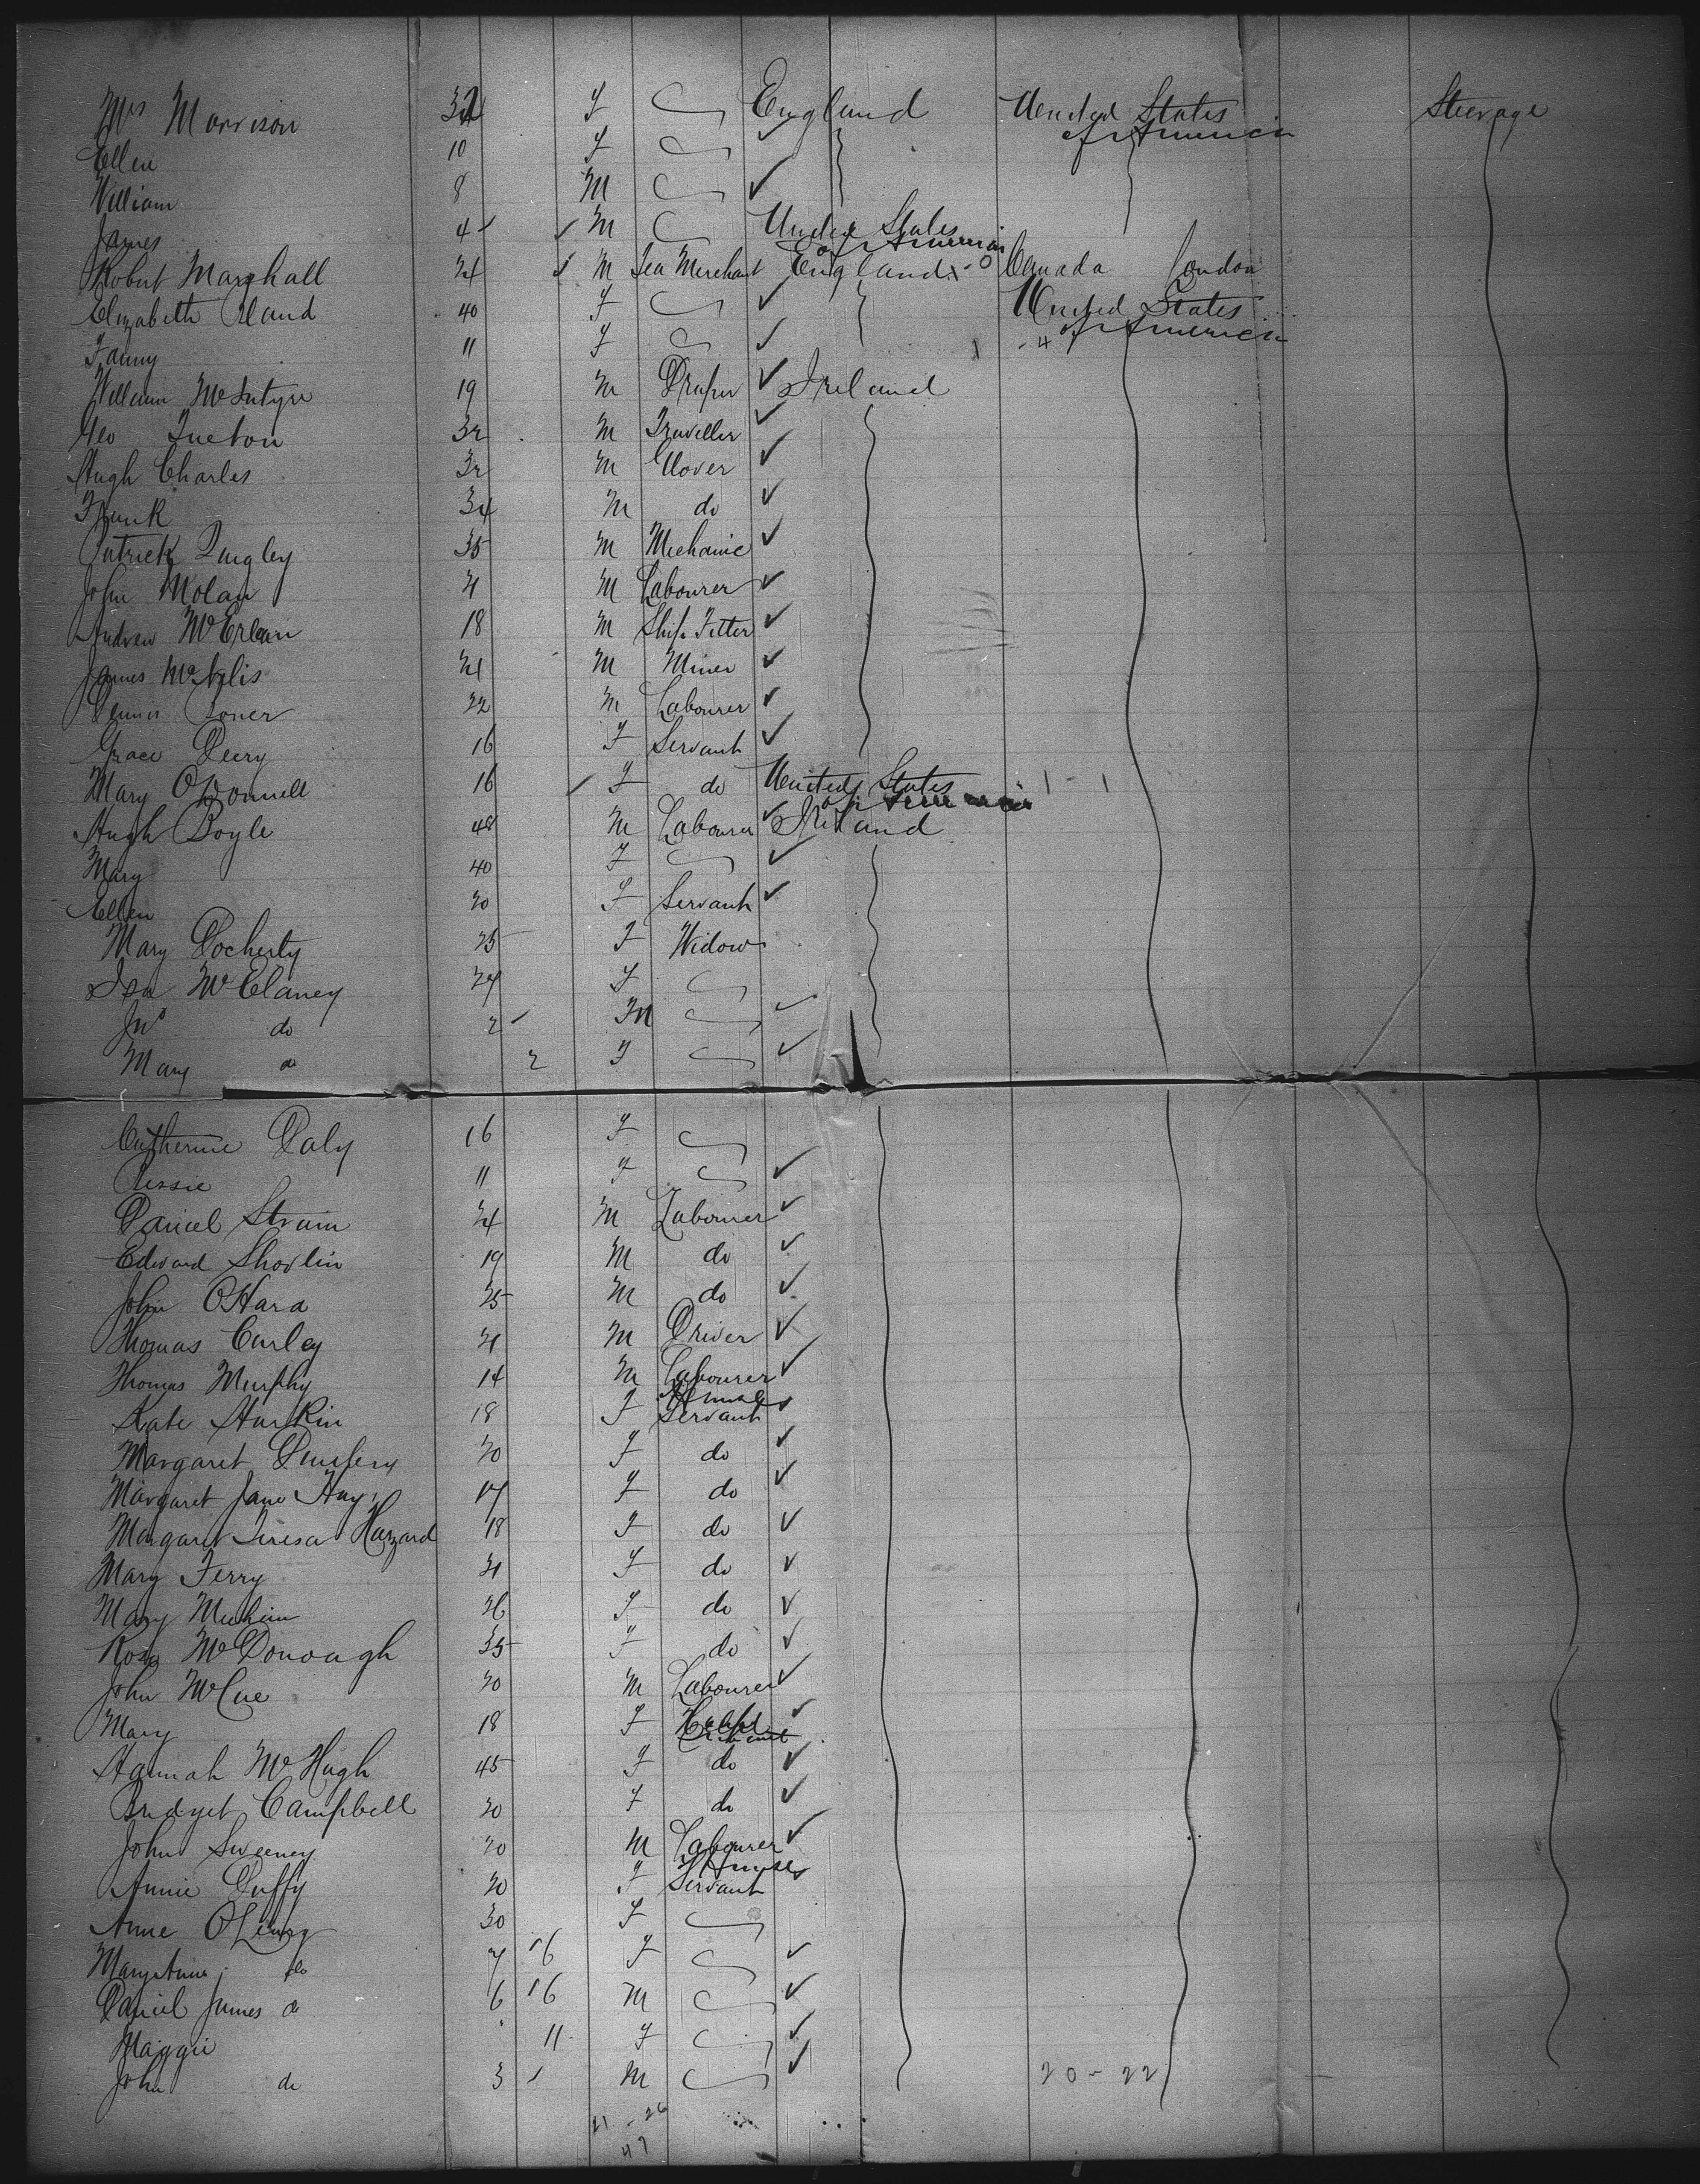 Mrs Morrison 32 F England United States of America Steerage
Ellen 10 F
William 8 M
James 4 M United States of America
Robert Marshall 24 M Tea Merchant England Canada London
Elizabeth 40 F United States of America
Fanny 11 F
William McIntyre 19 M Draper Ireland
Geo 32 M Traveller
Hugh Charles 32 M
Frank 34 M do
Patrick Quigley 35 M Mechanic
John Molan 21 M Labourer
Andrew McErlean 18 M Ship Fitter
James McNelis 21 M Miner
Dennis Boner 22 M Labourer
Grace Deery 16 F Servant
Mary O'Donnell 16 F do United States of America 1 - 1
Hugh Boyle 48 M Labourer Ireland
Mary 40 F
Ellen 20 F Servant
Mary Docherty 25 F Widow
Isa McElaney 24 F
Jno do 2 M
Mary do 2 F
Catherine Daly 16 F
Bessie 11 F
Daniel Strain 24 M Labourer
Edward Shovlin 19 M do
John O'Hara 25 M do
Thomas Curley 21 M Driver
Thomas Murphy 14 M Labourer
Kate Harkin 18 F House Servant
Margaret 20 F do
Margaret Jane Hay 17 F do
Margaret Teresa Hazard 18 F do
Mary Ferry 21 F do
Mary 26 F do
Rose McDonough 35 F do
John McCue 20 M Labourer
Mary 18 F
Hannah McHugh 45 F do
Bridget Campbell 20 F do
John Sweeney 20 M Labourer
Annie Duffy 20 F House Servant
Anne 30 F
Mary Anne do 7 16 F
Daniel James do 6 16 M
Maggie 11 F
John do 3 M 20 - 22
21 - 26
47